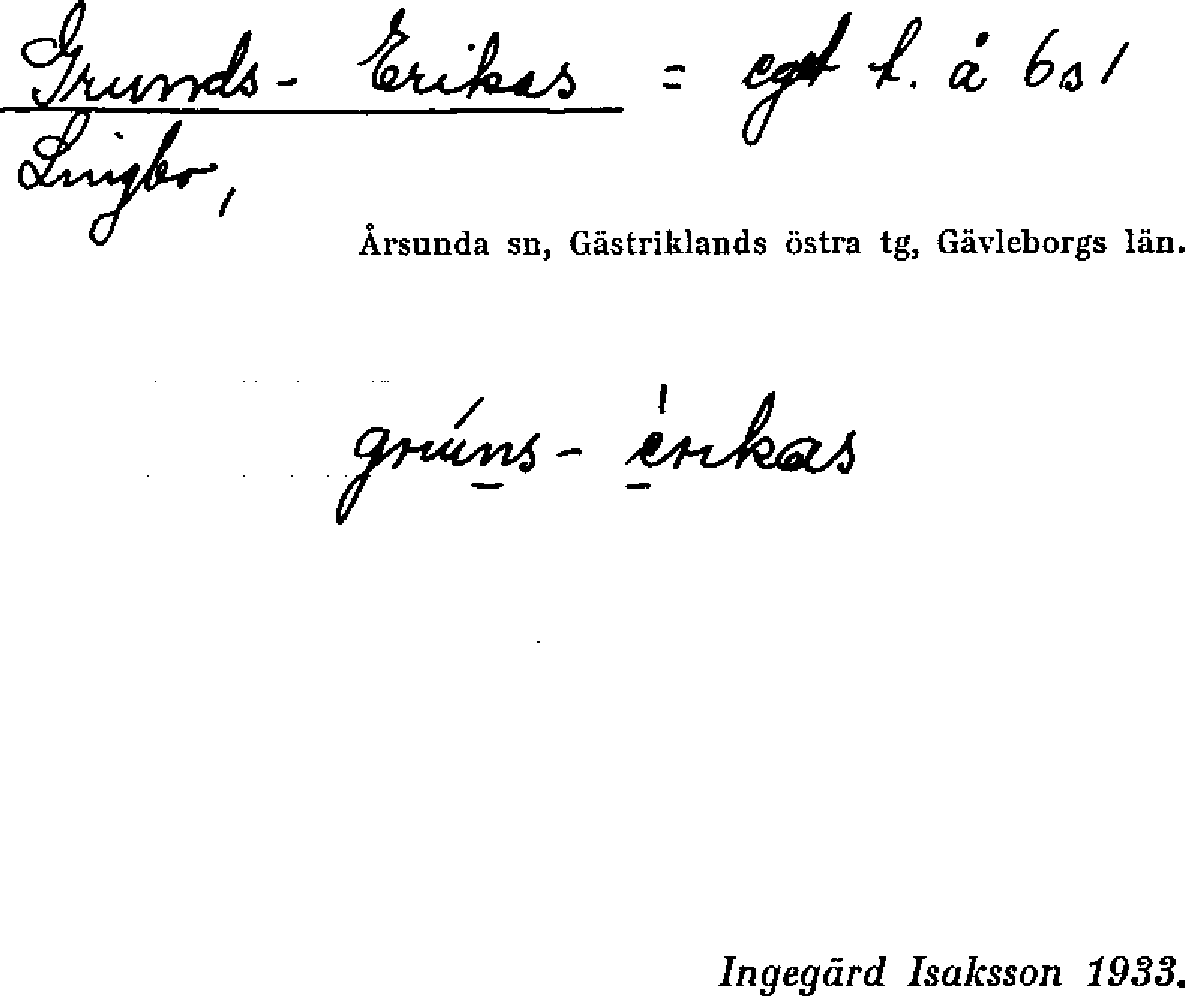 Grunds- Erikas = egt t. å 6s1
Lingbo,
Årsunda sn, Gästriklands östra tg, Gävleborgs län.
grúns- èrikas
Ingegärd Isaksson 1933.